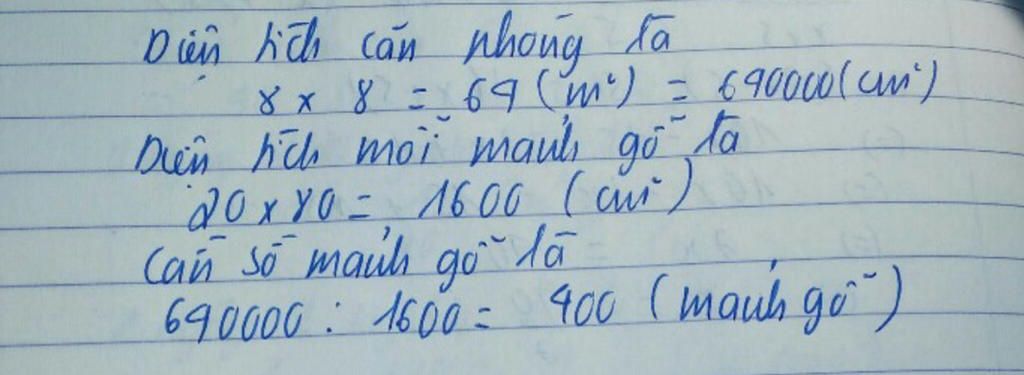 Diện tích căn phòng là
8 x 8 = 64 (m²) = 640000 (cm²)
Diện tích mỗi mảnh gỗ là
20 x 80 = 1600 (cm²)
Cần số mảnh gỗ là
640000 : 1600 = 400 (mảnh gỗ)